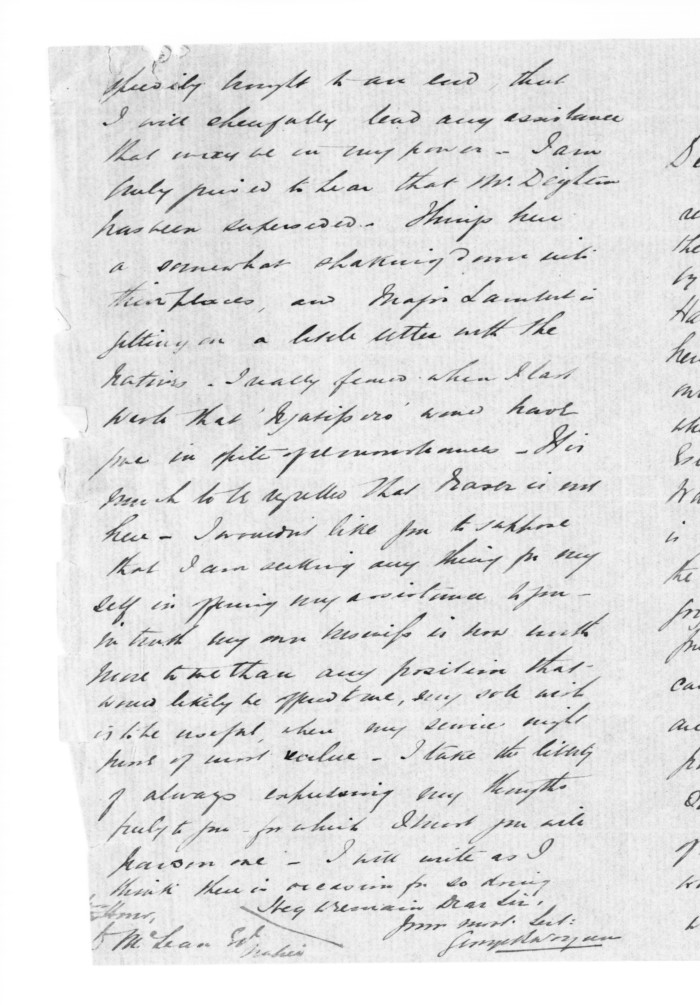 speedily brought to an end, that
I will cheerfully lend any assistance
that may be in my power - I am
truly grieved to hear that Mr. Deighton
has been superseded. Things here
a somewhat shaking down into
their places, and Major Lambert is
getting on a little better with the
Natives - I really feared when I last
wrote that Ngatiporo would have
gone in spite of remonstrances - It is
much to be regretted that Fraser is not
here - I wouldn't like you to suppose
that I am seeking any thing for my
self in offering my assistance to you -
in truth my own business is now worth
more to me than any position that
would likely be offered to me, my sole wish
is to be useful, where my service might
prove of most value - I take the liberty
of always expressing my thoughts
truly to you - for which I trust you will
pardon me - I will write as I
think there is occasion for so doing
I beg to remain Dear Sir,
Your most Svt:
George
McLean Esq
Napier